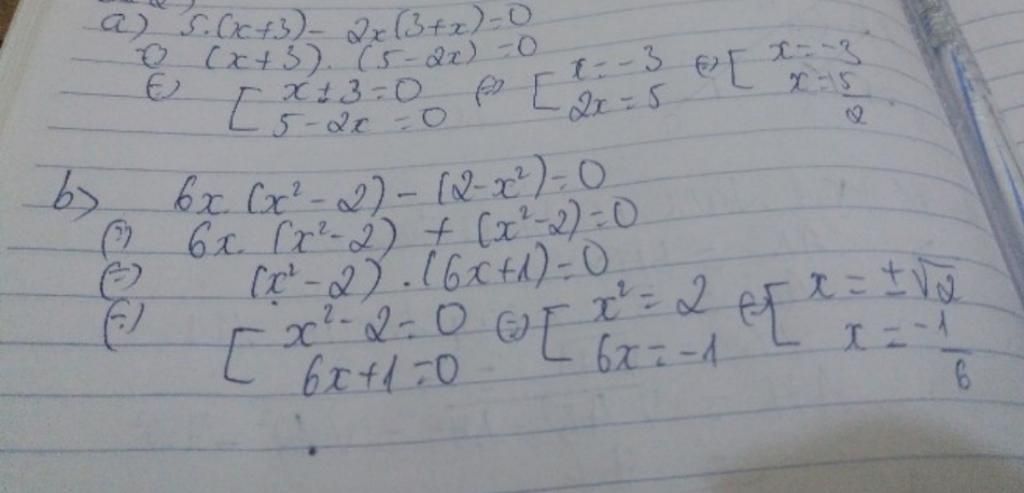 a) 5.(x+3) - 2x(3+x)=0
⇔ (x+3).(5-2x)=0
⇔ [ x+3=0 ⇔ [ x=-3 ⇔ [ x=-3
5-2x=0 2x=5 x=5/2
b) 6x.(x²-2)-(2-x²)=0
(=) 6x.(x²-2)+(x²-2)=0
(=) (x²-2).(6x+1)=0
(=) [ x²-2=0 ⇔ [ x²=2 ⇔ [ x=±√2
6x+1=0 6x=-1 x=-1/6